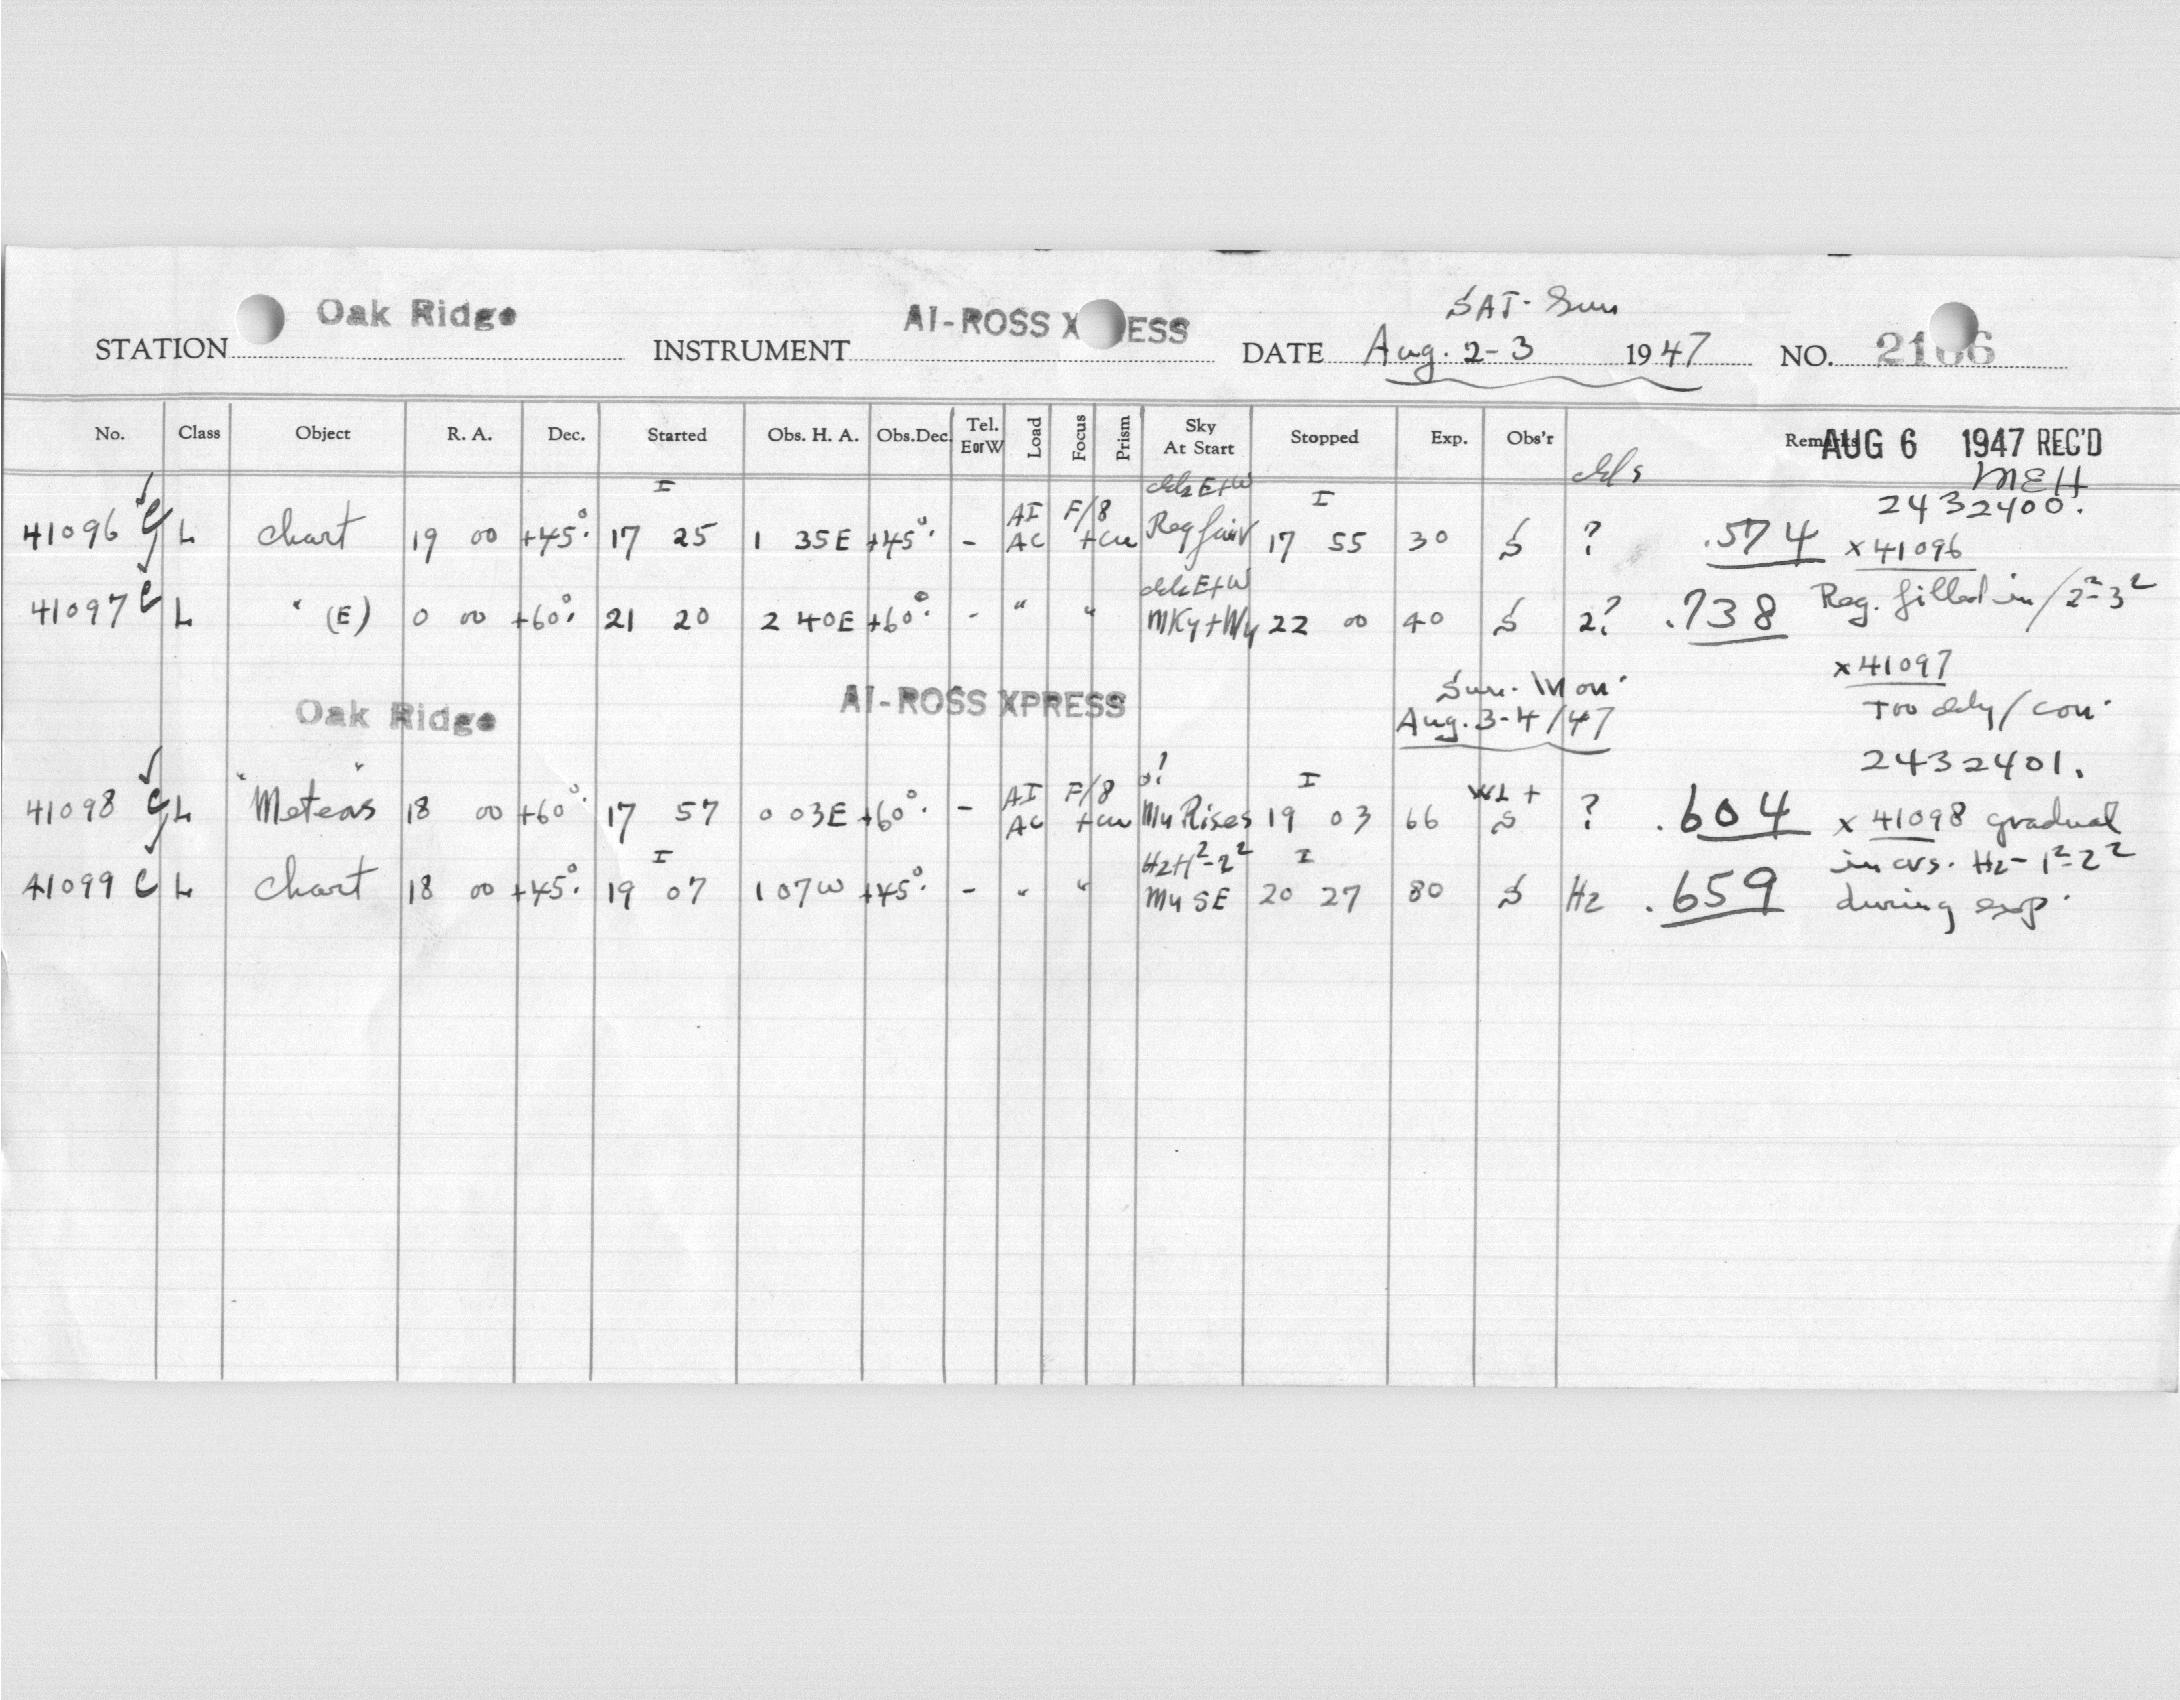 SAT. Sun
STATION Oak Ridge INSTRUMENT AI-ROSS X ESS DATE Aug. 2-3 1947 NO. 2166
No. Class Object R. A. Dec. Started Obs. H. A. Obs.Dec. Tel. E or W Load Focus Prism Sky At Start Stopped Exp. Obs'r Remarks
AUG 6 1947 REC'D
MEH
2432400.
I I
41096 C L Chart 19 00 +45° 17 25 1 35E +45° - AI AC F/8 Reg fair 17 55 30 S ? .574 x 41096
41097 C L " (E) 0 00 +60° 21 20 2 40E +60° - " " MKy+My 22 00 40 S 2? .738 Reg. filled in / 2²-3²
x 41097
Oak Ridge AI-ROSS XPRESS Sun. Mon.
Aug. 3-4/47
Too cldy/con.
2432401.
I
41098 C L "Meteors" 18 00 +60° 17 57 0 03E +60° - AI AC F/8 o! My Rises 19 03 66 WL + S ? .604 x 41098 gradual
I I
41099 C L Chart 18 00 +45° 19 07 1 07W +45° - " " Hz 1²-2² My SE 20 27 80 S Hz .659 incrs. Hz- 1²-2²
during exp.